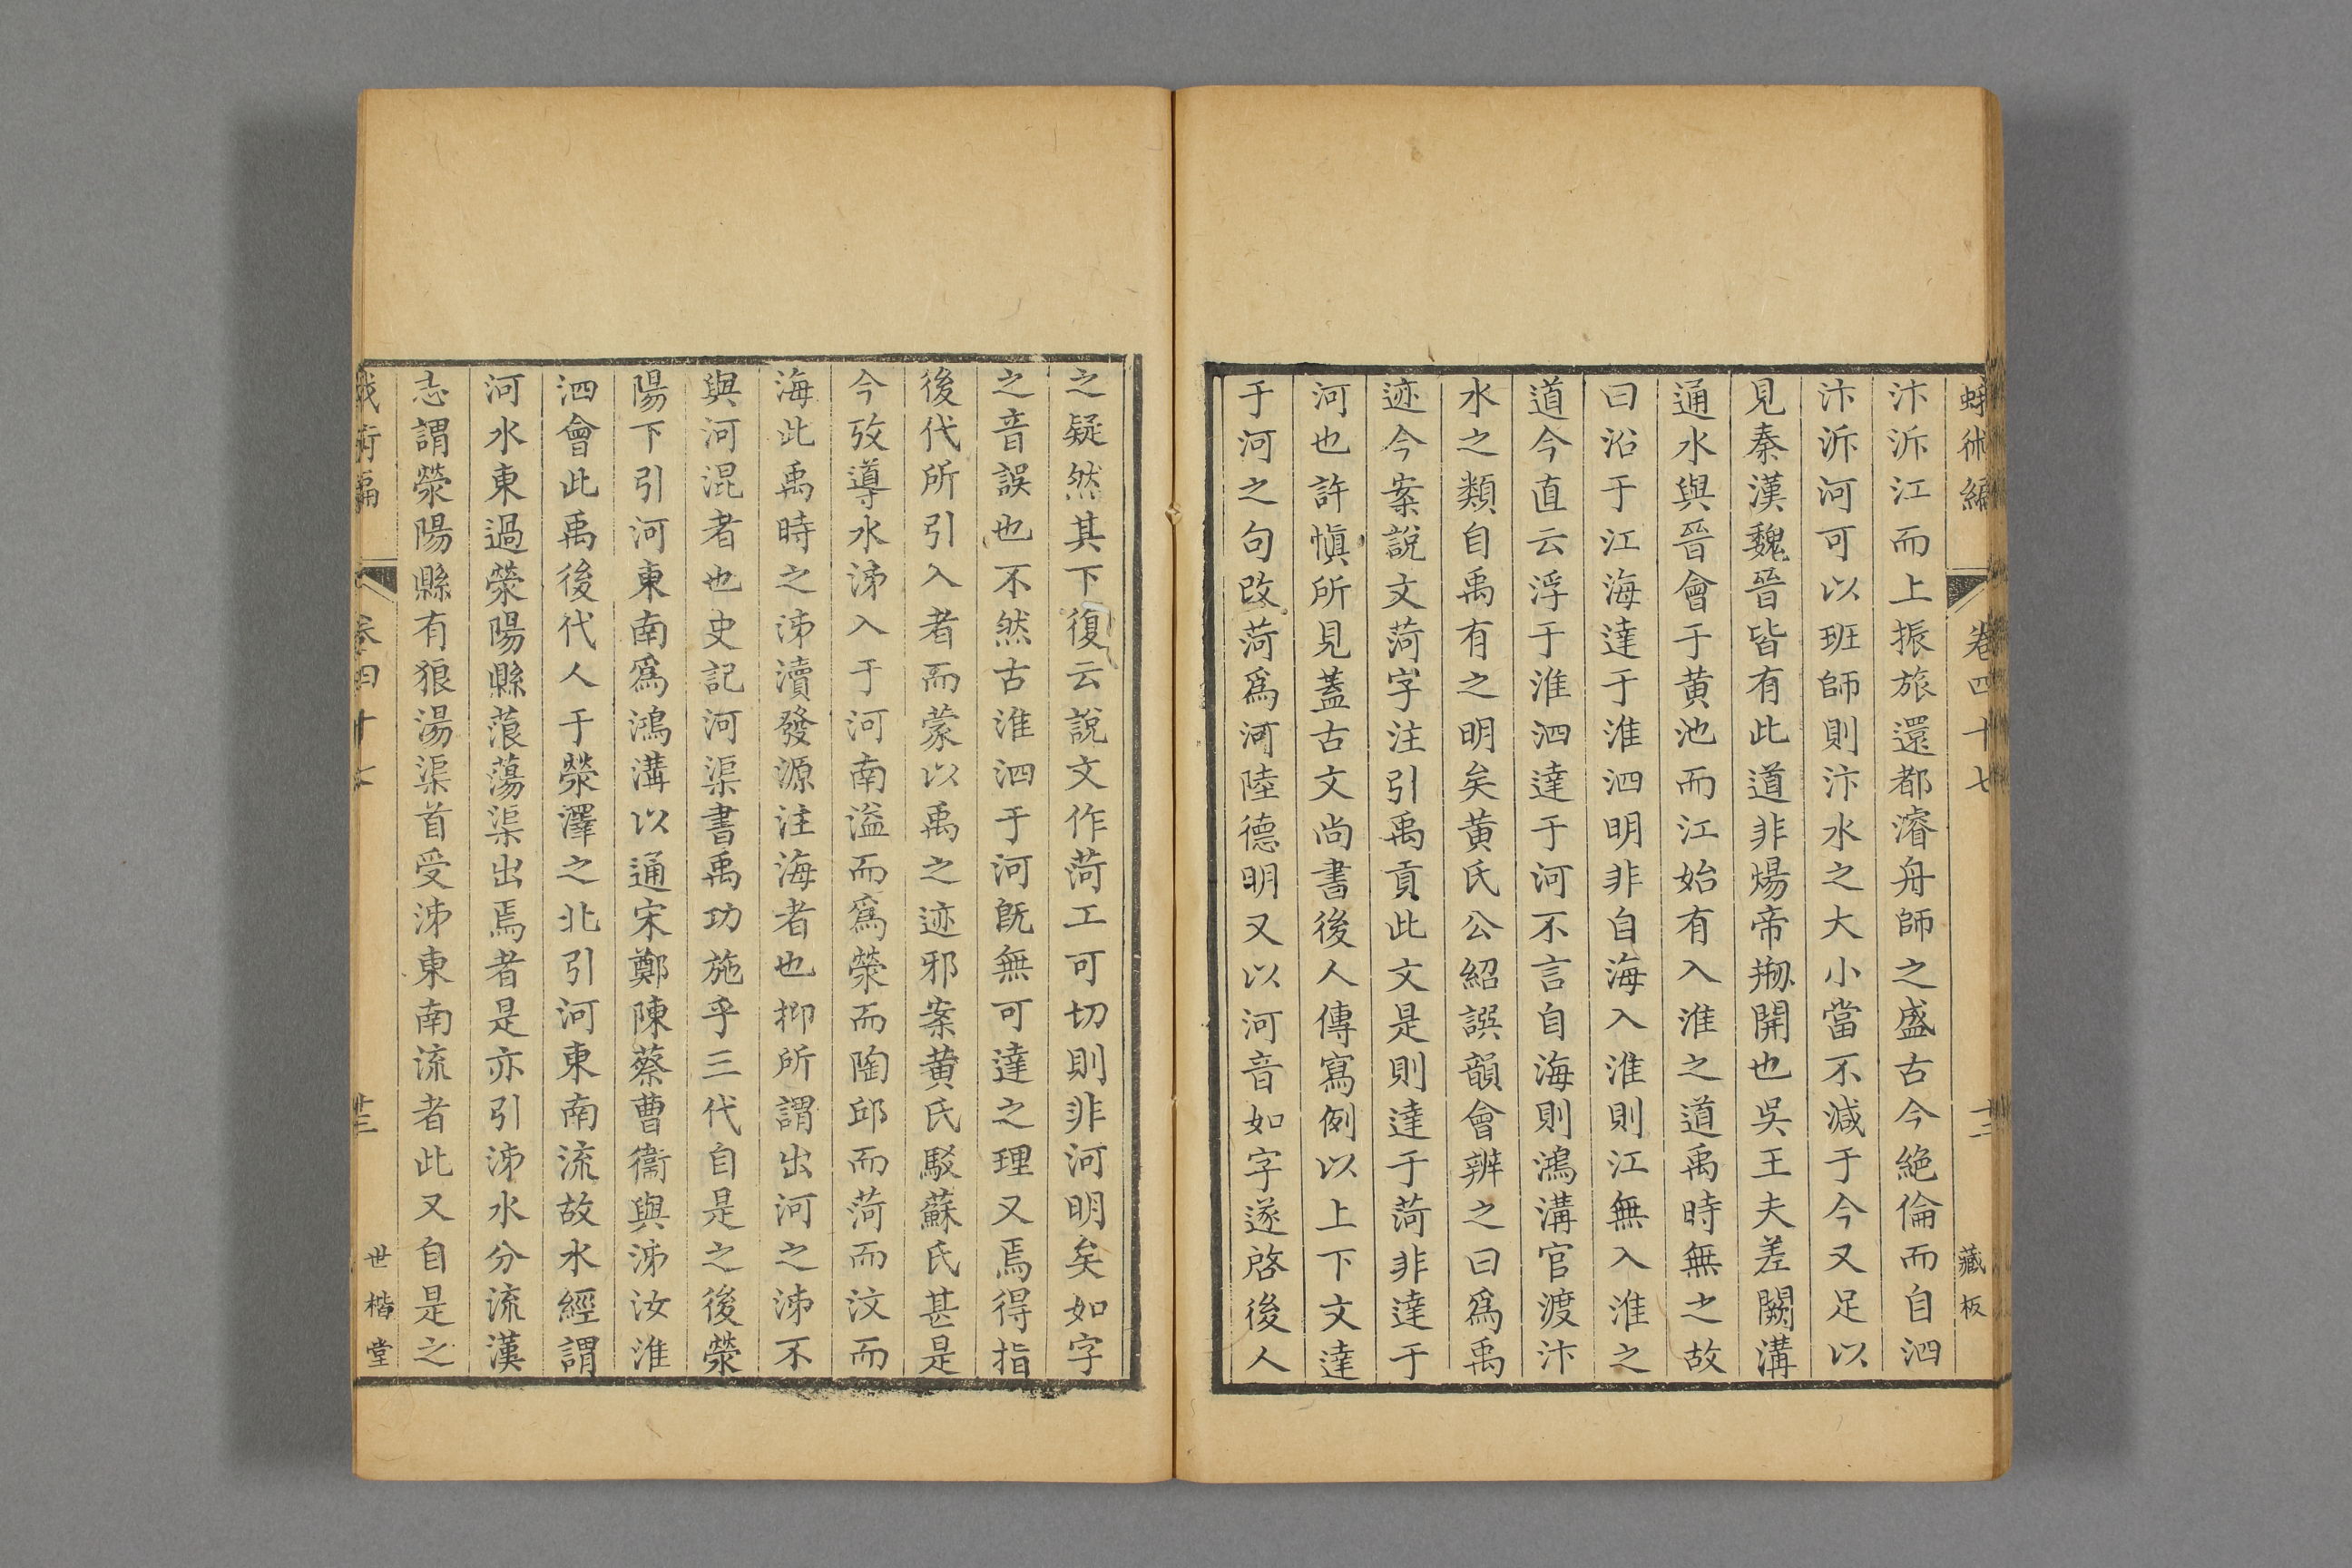 蛾術編 卷四十七 十二 藏板
汴泝江而上振旅還都濬舟師之盛古今絶倫而自泗
汴泝河可以班師則汴水之大小當不減于今又足以
見秦漢魏晉皆有此道非煬帝剏開也吳王夫差闕溝
通水與晉會于黄池而江始有入淮之道禹時無之故
曰沿于江海達于淮泗明非自海入淮則江無入淮之
道今直云浮于淮泗達于河不言自海則鴻溝官渡汴
水之類自禹有之明矣黄氏公紹誤韻會辨之曰爲禹
迹今案説文菏字注引禹貢此文是則達于菏非達于
河也許愼所見蓋古文尚書後人傳寫例以上下文達
于河之句改菏爲河陸德明又以河音如字遂啓後人
之疑然其下復云説文作菏工可切則非河明矣如字
之音誤也不然古淮泗于河旣無可達之理又焉得指
後代所引入者而蒙以禹之迹邪案黄氏駁蘇氏甚是
今攷導水泲入于河南溢而爲滎而陶邱而菏而汶而
海此禹時之泲瀆發源注海者也抑所謂出河之泲不
與河混者也史記河渠書禹功施乎三代自是之後滎
陽下引河東南爲鴻溝以通宋鄭陳蔡曹衞與泲汝淮
泗會此禹後代人于滎澤之北引河東南流故水經謂
河水東過滎陽縣蒗蕩渠出焉者是亦引泲水分流漢
志謂滎陽縣有狼湯渠首受泲東南流者此又自是之
蛾術編 卷四十七 世楷堂